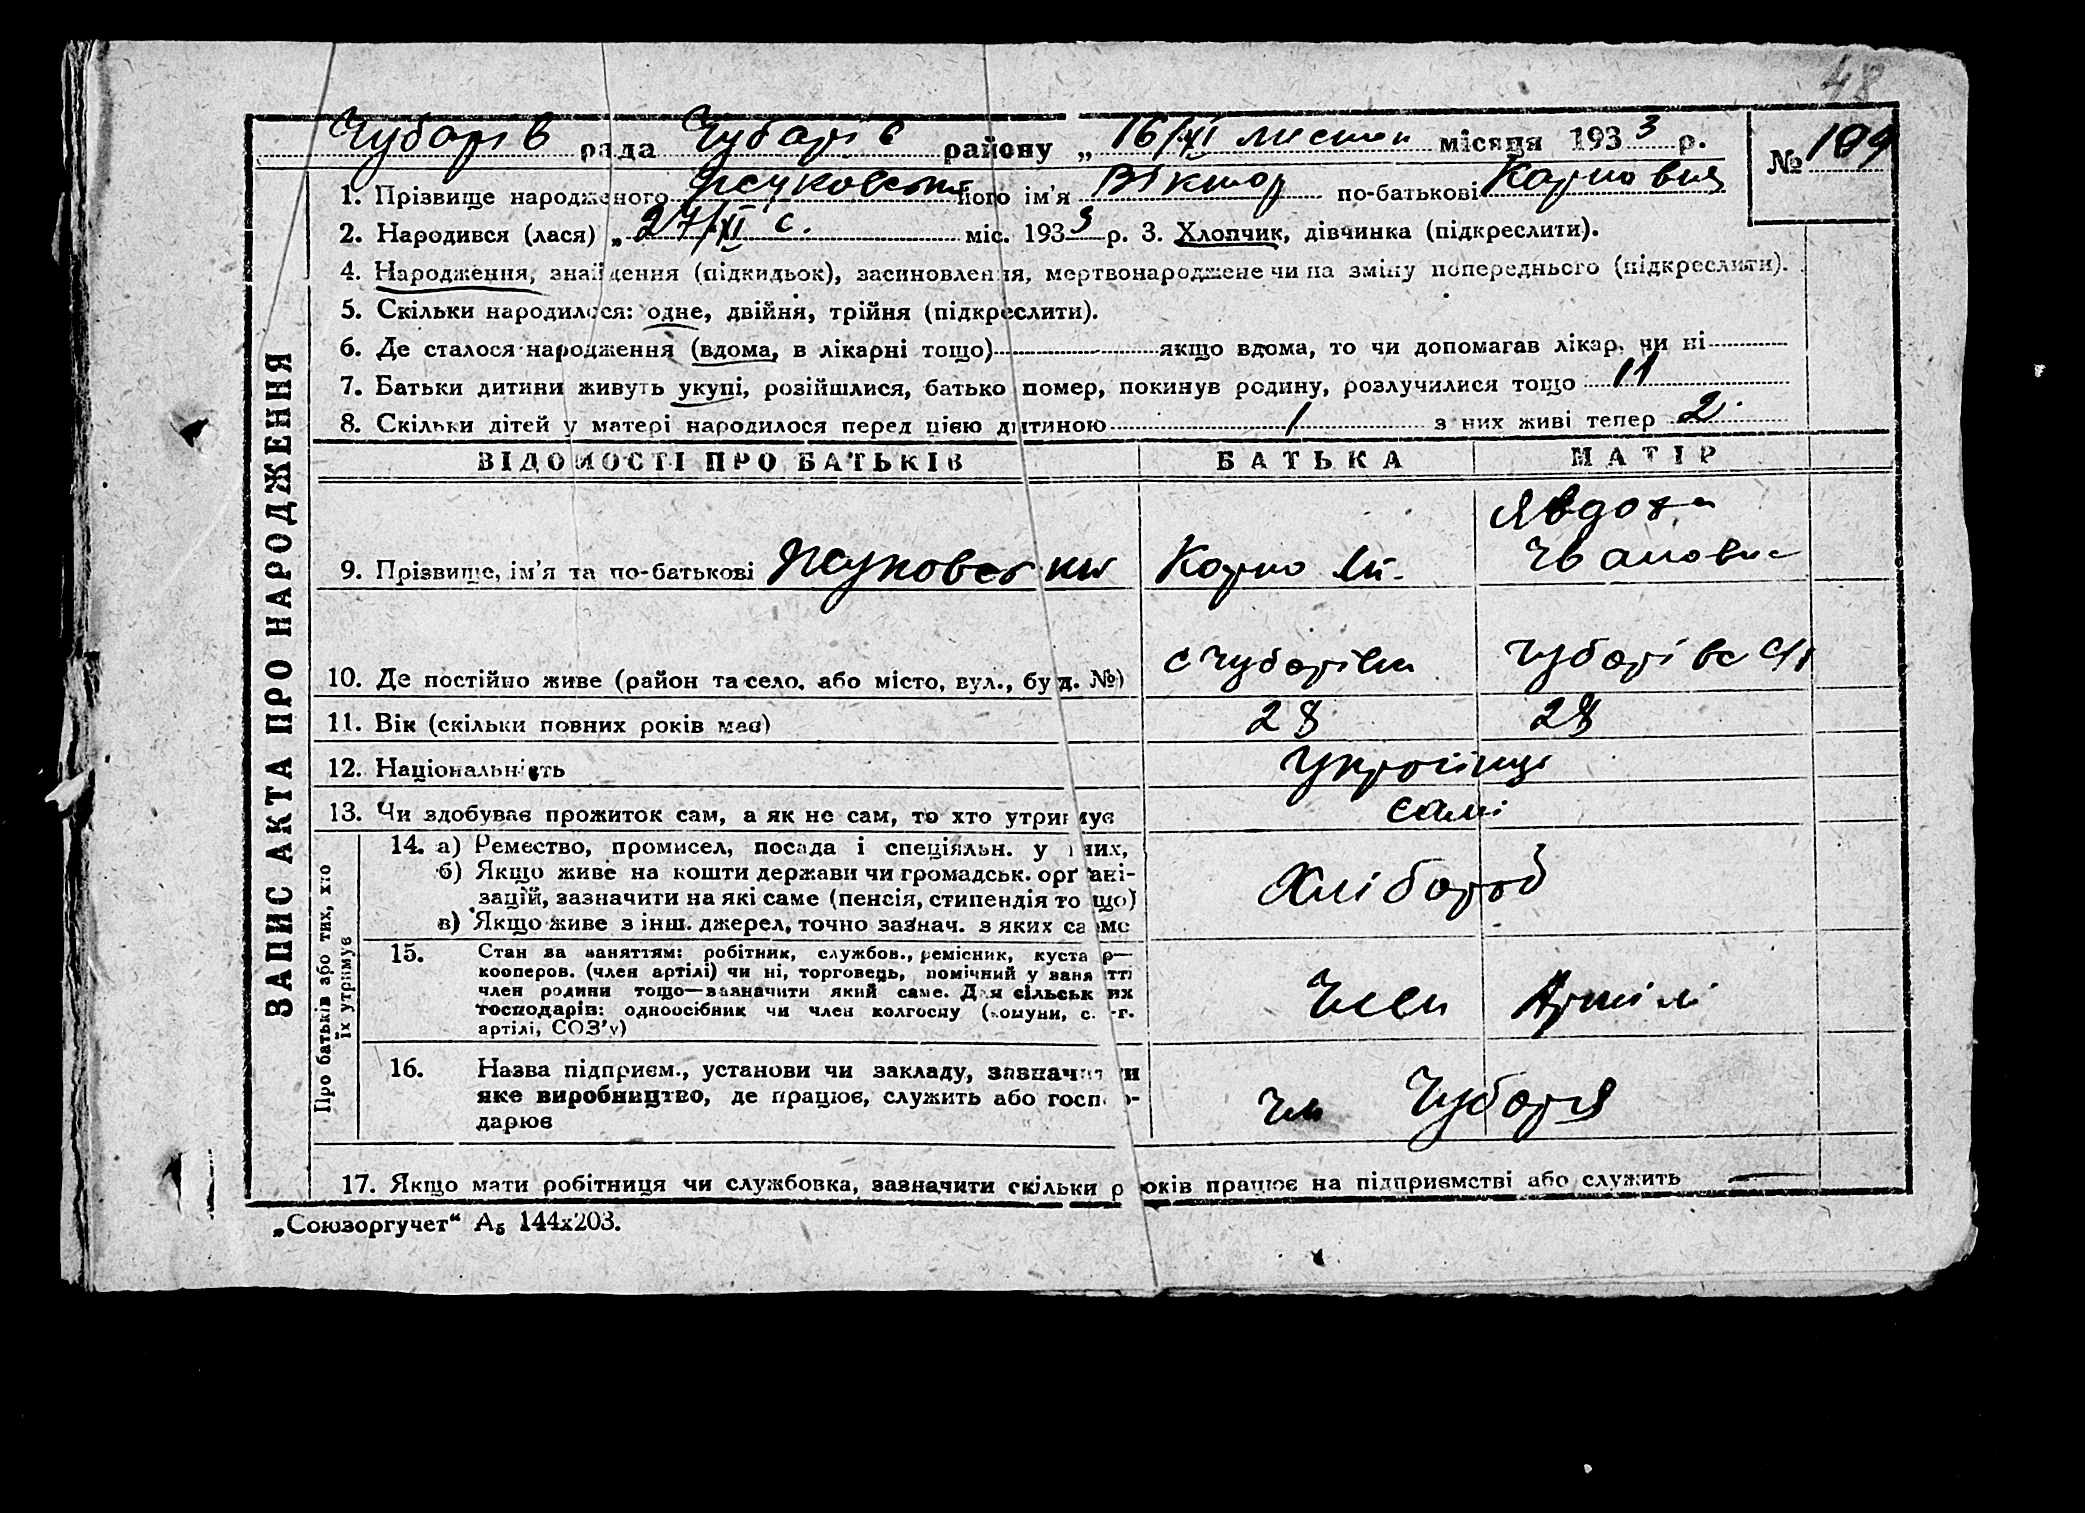 48
Чубарів рада Чубарів району „ 16/XI листоп місяця 1933 р.
№ 199
1. Прізвище народженого його ім'я Віктор по-батькові Карпович
2. Народився (лася) „ 27/ с. міс. 1933 р. 3. Хлопчик, дівчинка (підкреслити).
4. Народження, знайдення (підкидьок), засиновлення, мертвонароджене чи на зміну попереднього (підкреслити).
5. Скільки народилося: одне, двійня, трійня (підкреслити).
6. Де сталося народження (вдома, в лікарні тощо) якщо вдома, то чи допомагав лікар. чи ні
7. Батьки дитини живуть укупі, розійшлися, батько помер, покинув родину, розлучилися тощо
8. Скільки дітей у матері народилося перед цією дитиною 1 з них живі тепер 2
ЗАПИС АКТА ПРО НАРОДЖЕННЯ
ВІДОМОСТІ ПРО БАТЬКІВ БАТЬКА МАТІР
Явдоха
9. Прізвище, ім'я та по-батькові Карпо
10. Де постійно живе (район та село, або місто, вул., буд. №) с Чубарівка Чубарівка
11. Вік (скільки повних років має) 28 28
12. Національність Українці
13. Чи здобуває прожиток сам, а як не сам, то хто утримує самі
Про батьків або тих, хто їх утримує
14. а) Ремество, промисел, посада і спеціяльн. у них,
б) Якщо живе на кошти держави чи громадськ. органі-
зацій, зазначити на які саме (пенсія, стипендія тощо)
в) Якщо живе з інш. джерел, точно зазнач. з яких саме
Хлібороб
15. Стан за заняттям: робітник, службов., ремісник, кустар—
кооперов. (член артілі) чи ні, торговець, помічний у занятті
член родини тощо—зазначити який саме. Для сільських
господарів: одноосібник чи член колгоспу (комуни, с.-г.
артілі, СОЗ'у)
Член Артілі
16. Назва підприєм., установи чи закладу, зазначити
яке виробництво, де працює, служить або госпо-
дарює
17. Якщо мати робітниця чи службовка, зазначити скільки років працює на підприємстві або служить —
„Союзоргучет“ А₅ 144х203.